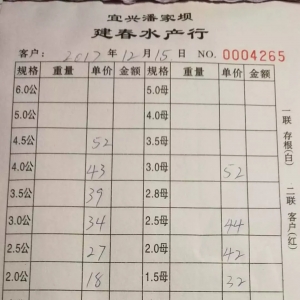 宜兴潘家坝
建春水产行
客户: 2017年12月15日 NO. 0004265
规格 重量 单价 金额 规格 重量 单价 金额
6.0公 5.0母
5.0公 4.5母
4.5公 52 3.5母
4.0公 43 3.0母 52
3.5公 39 2.8母
3.0公 34 2.5母 44
2.5公 27 2.0母 42
2.0公 18 1.5母 32
一联 存根(白)
二联 客户(红)